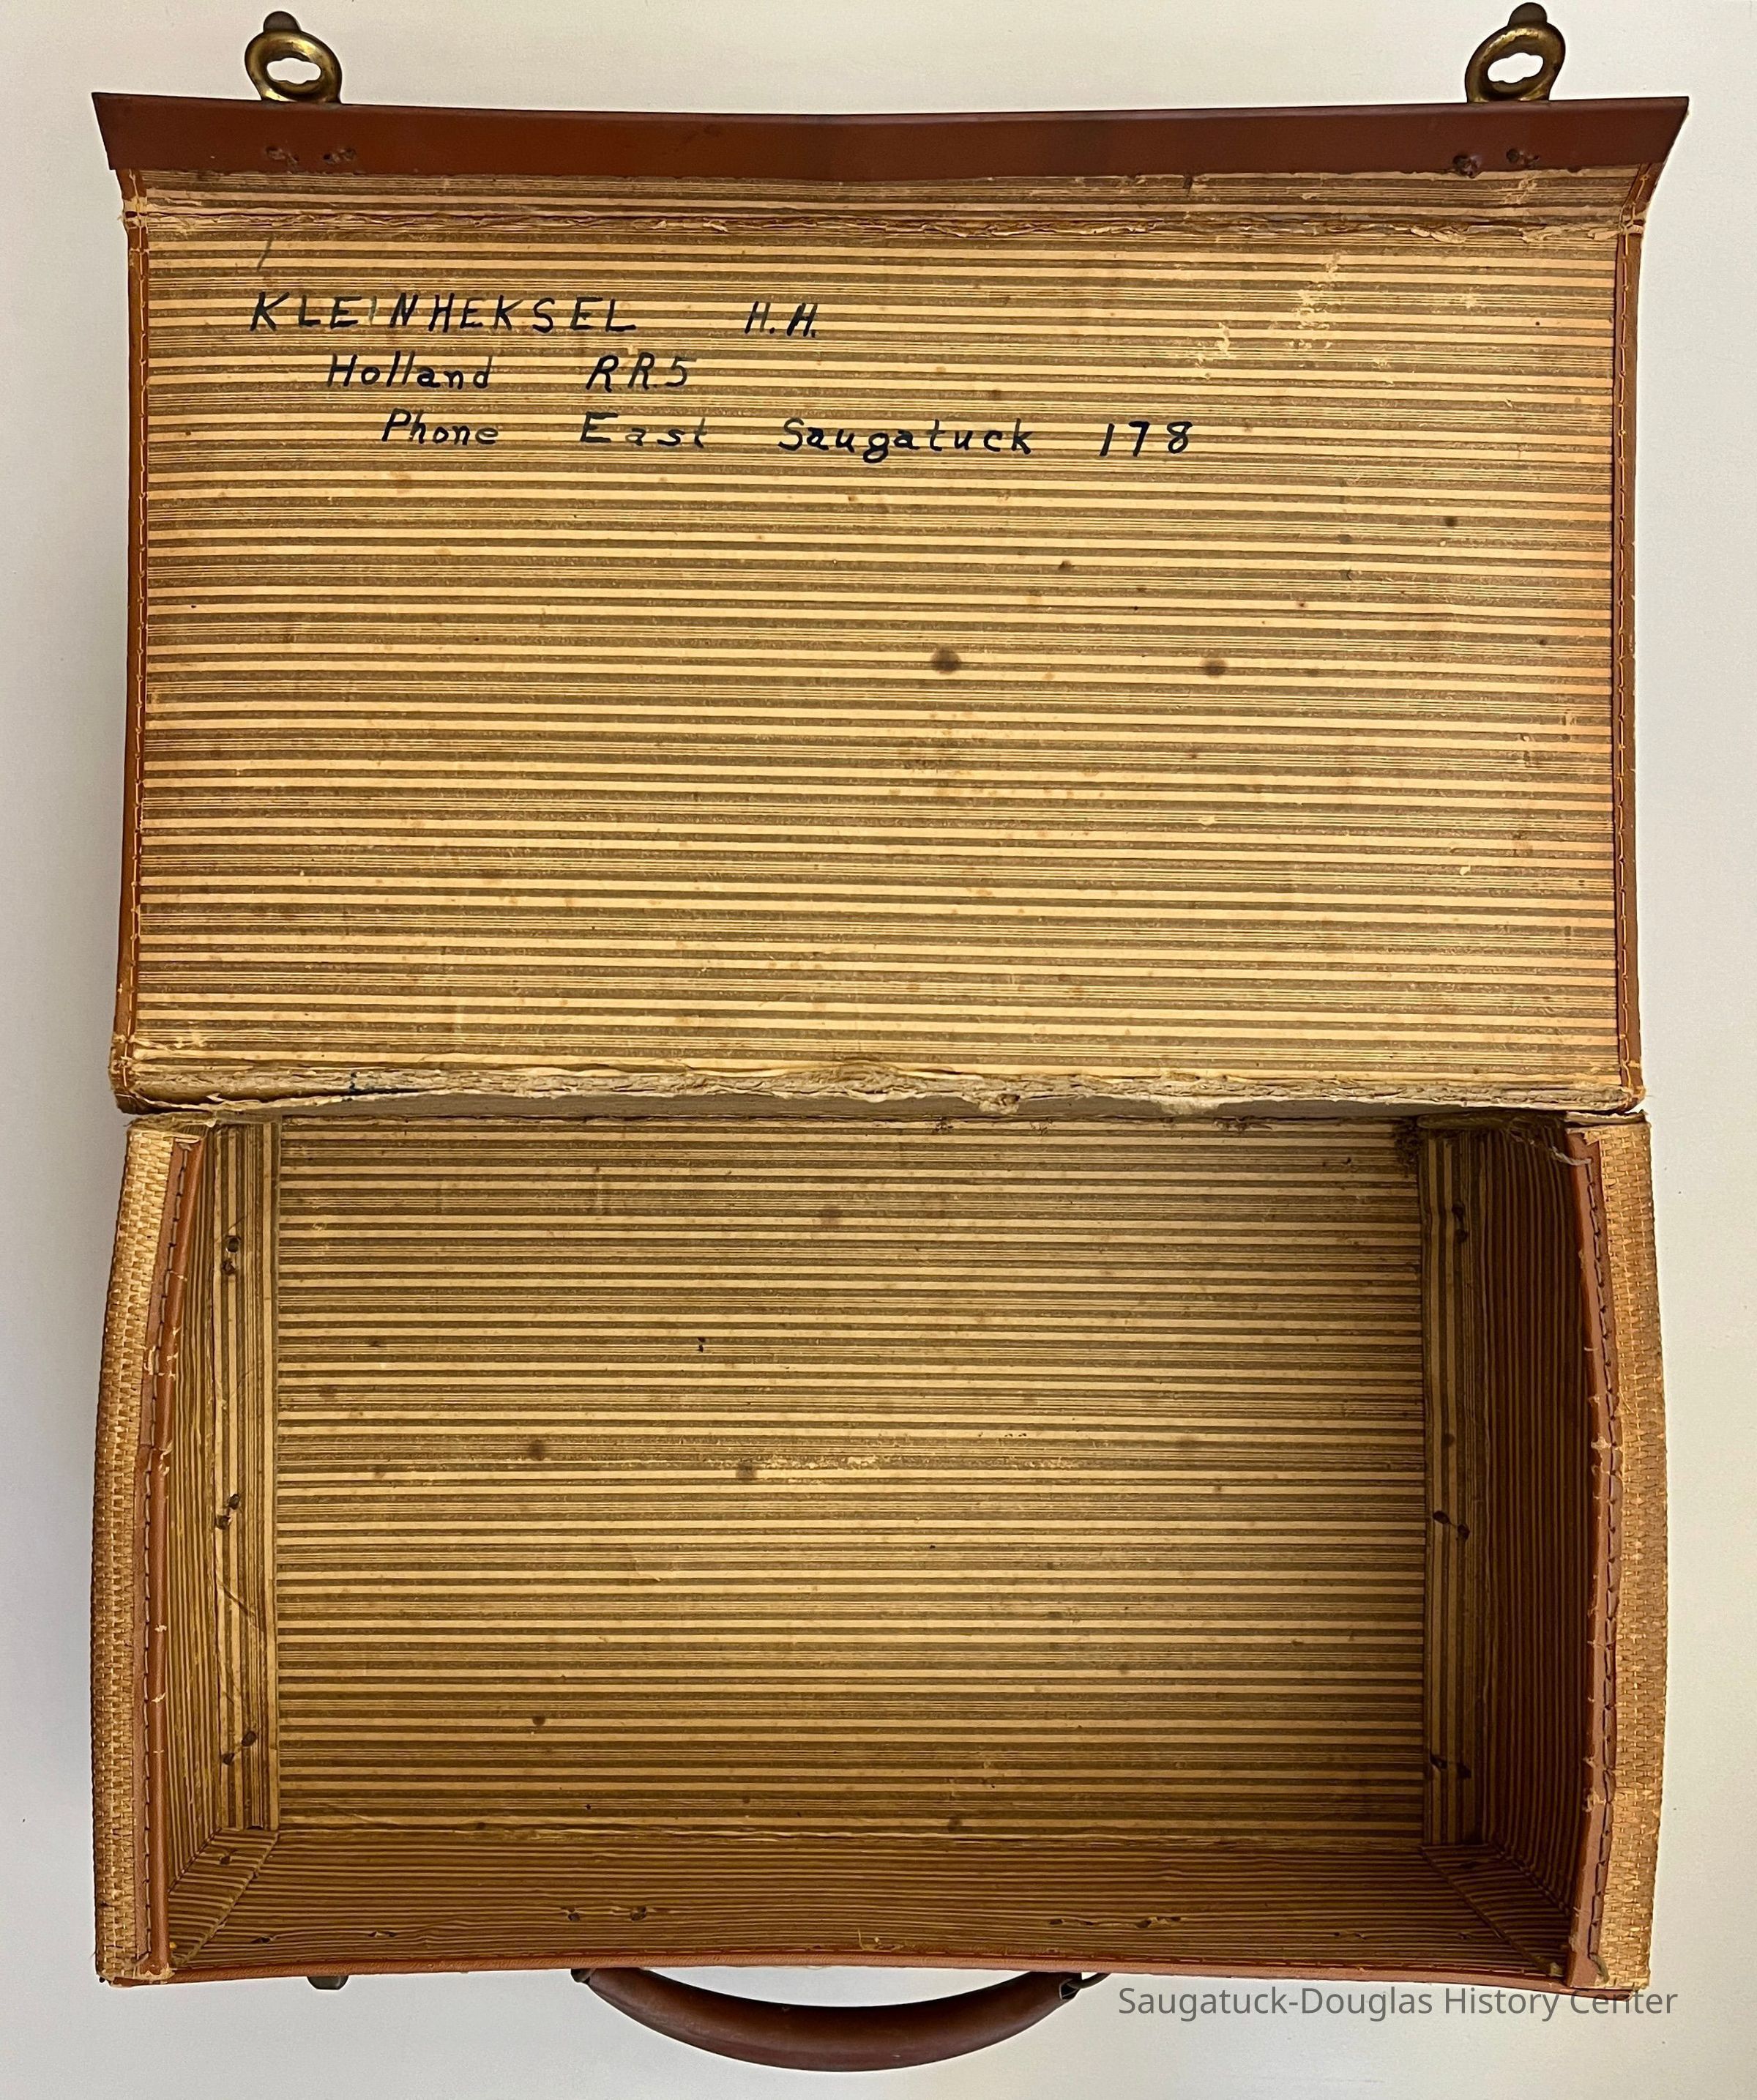 KLEINHEKSEL H.H.
Holland RR5
Phone East Saugatuck 178
Saugatuck-Douglas History Center